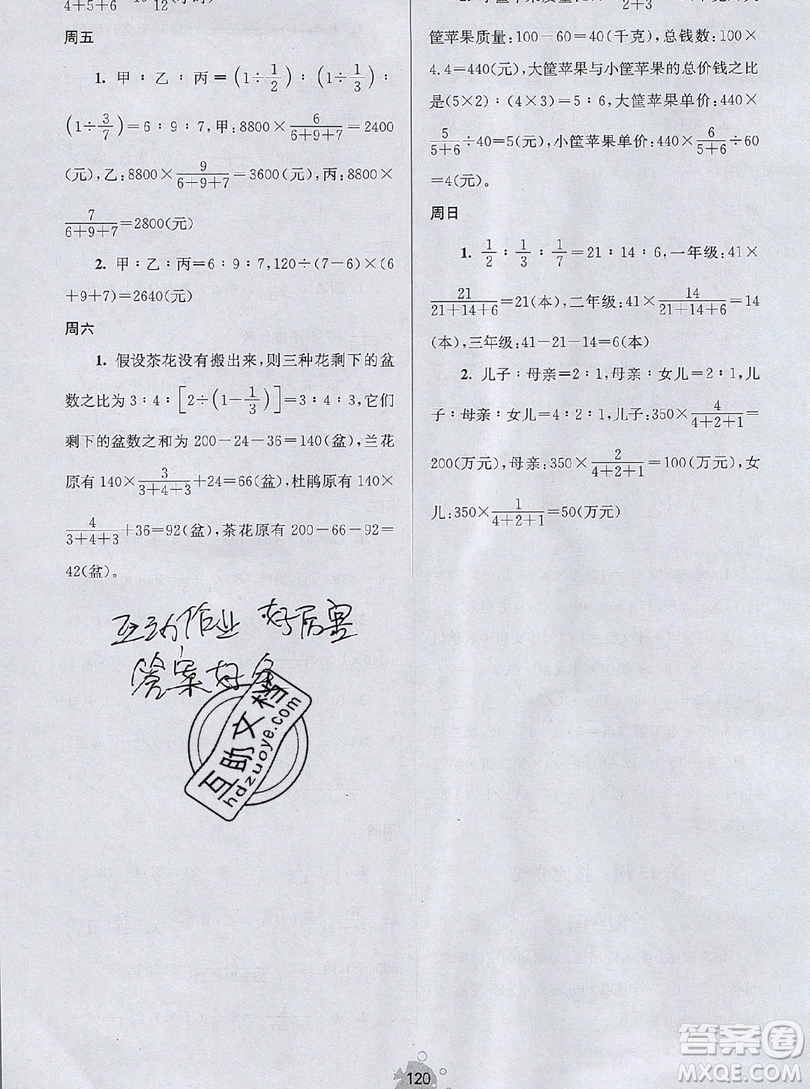 4+5+6 12
周五
1. 甲∶乙∶丙=(1÷1/2)∶(1÷1/3)∶
(1÷3/7)=6∶9∶7,甲:8800×6/(6+9+7)=2400
(元),乙:8800×9/(6+9+7)=3600(元),丙:8800×
7/(6+9+7)=2800(元)
2. 甲∶乙∶丙=6∶9∶7,120÷(7-6)×(6
+9+7)=2640(元)
周六
1. 假设茶花没有搬出来,则三种花剩下的盆
数之比为3∶4∶[2÷(1-1/3)]=3∶4∶3,它们
剩下的盆数之和为200-24-36=140(盆),兰花
原有140×3/(3+4+3)+24=66(盆),杜鹃原有140×
4/(3+4+3)+36=92(盆),茶花原有200-66-92=
42(盆)。
筐苹果质量:100-60=40(千克),总钱数:100×
4.4=440(元),大筐苹果与小筐苹果的总价钱之比
是(5×2)∶(4×3)=5∶6,大筐苹果单价:440×
5/(5+6)÷40=5(元),小筐苹果单价:440×6/(5+6)÷60
=4(元)。
周日
1. 1/2∶1/3∶1/7=21∶14∶6,一年级:41×
21/(21+14+6)=21(本),二年级:41×14/(21+14+6)=14
(本),三年级:41-21-14=6(本)
2. 儿子∶母亲=2∶1,母亲∶女儿=2∶1,儿
子∶母亲∶女儿=4∶2∶1,儿子:350×4/(4+2+1)=
200(万元),母亲:350×2/(4+2+1)=100(万元),女
儿:350×1/(4+2+1)=50(万元)
互动作业 好厉害
答案好全
互助文档
hdzuoye.com
120
答案圈
MXQE.COM